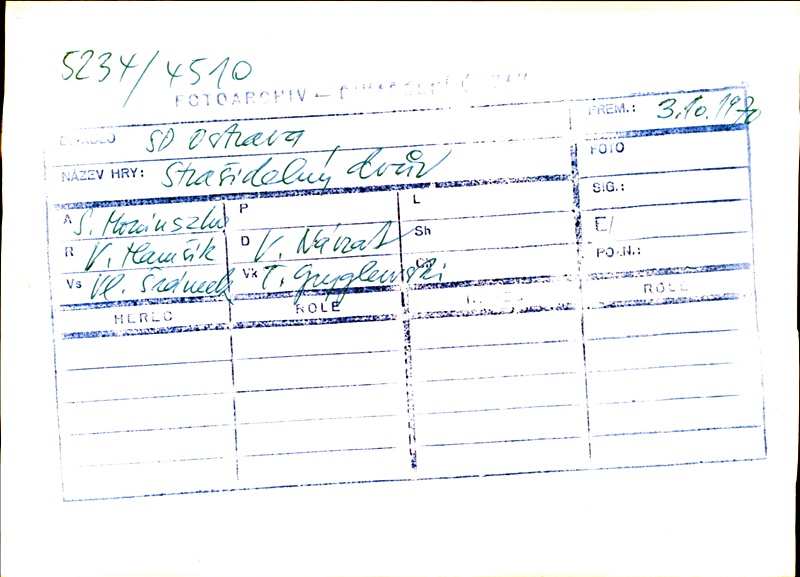 5234/4510
FOTOARCHIV – DIVADELNÍ ÚSTAV
DIVADLO SD Ostrava PREM.: 3.10.1970
NÁZEV HRY: Strašidelný dvůr FOTO
A S. Moniuszko P L SIG.:
R V. Hamšík D V. Návrat Sh E/
Vs Vl. Šrámek Vk T. Gryglewski Ch POZN.:
HEREC ROLE ROLE